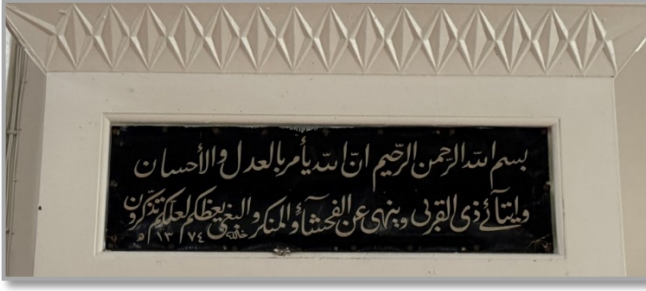 بسم الله الرحمن الرحيم ان الله يأمر بالعدل والأحسان
وإيتآئ ذى القربى وينهى عن الفحشآء والمنكر والبغي يعظكم لعلكم تذكرون